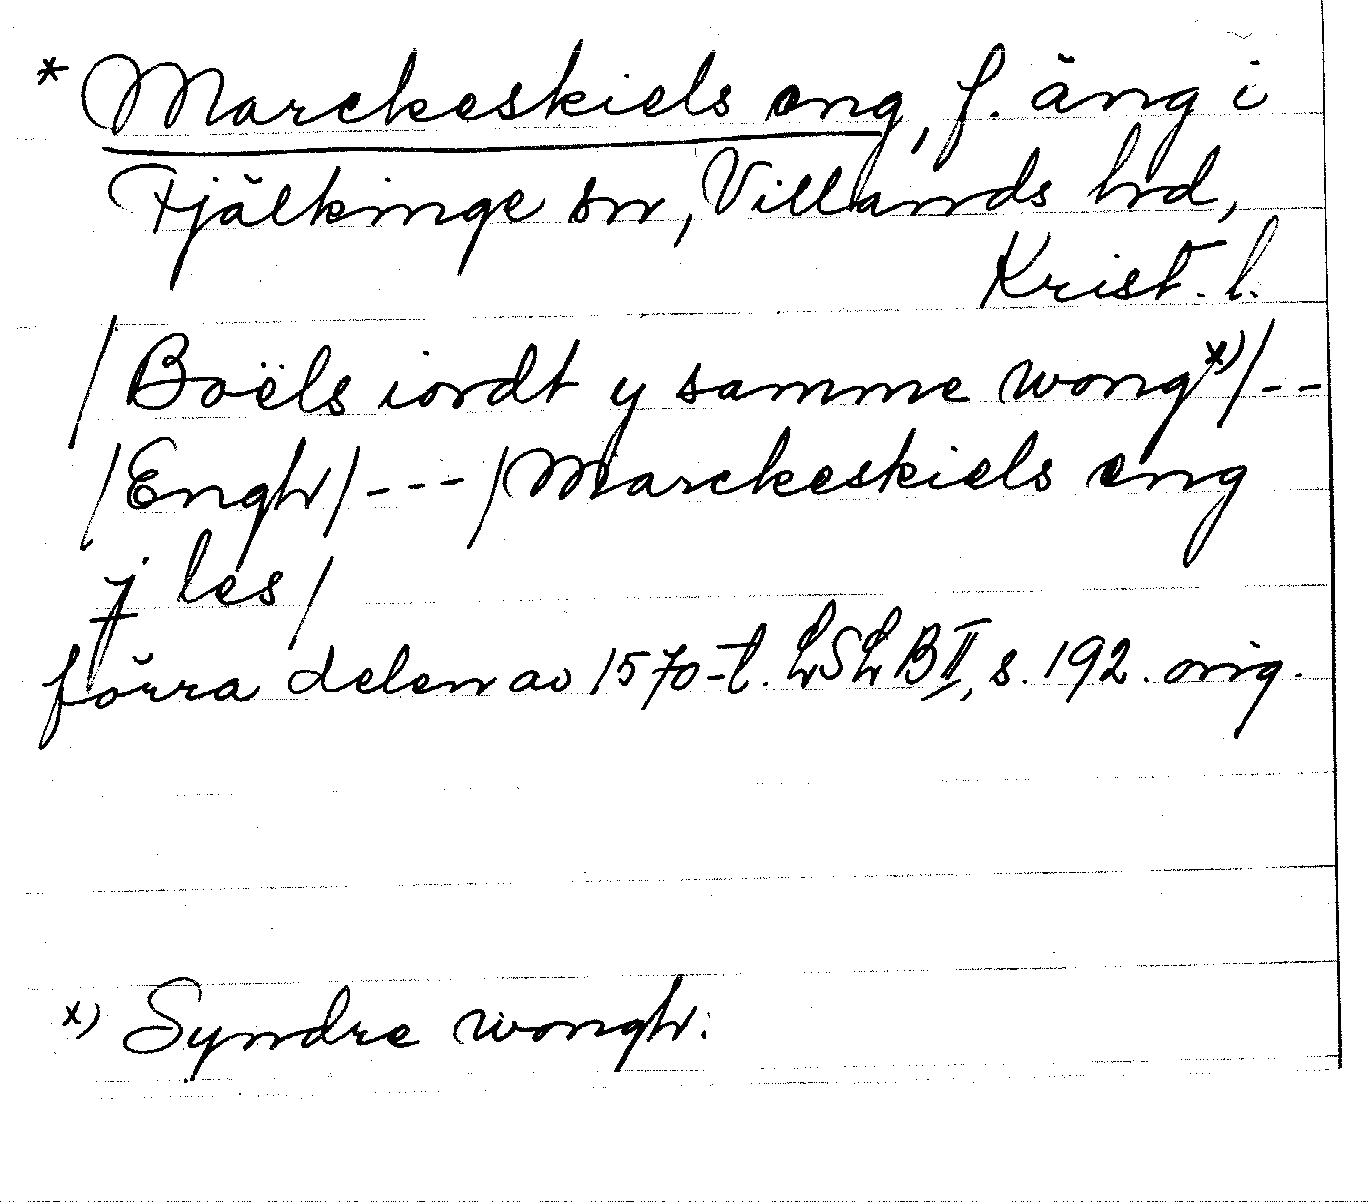 * Marckeskiels eng, f. äng i
Fjälkinge sn, Villands hd,
Krist. l.
/Boëls iordt y samme wong x)/--
/Engh/---/Marckeskiels eng
j les/
förra delen av 1570-t. LSLB II, s. 192. orig.
x) Syndre wongh.